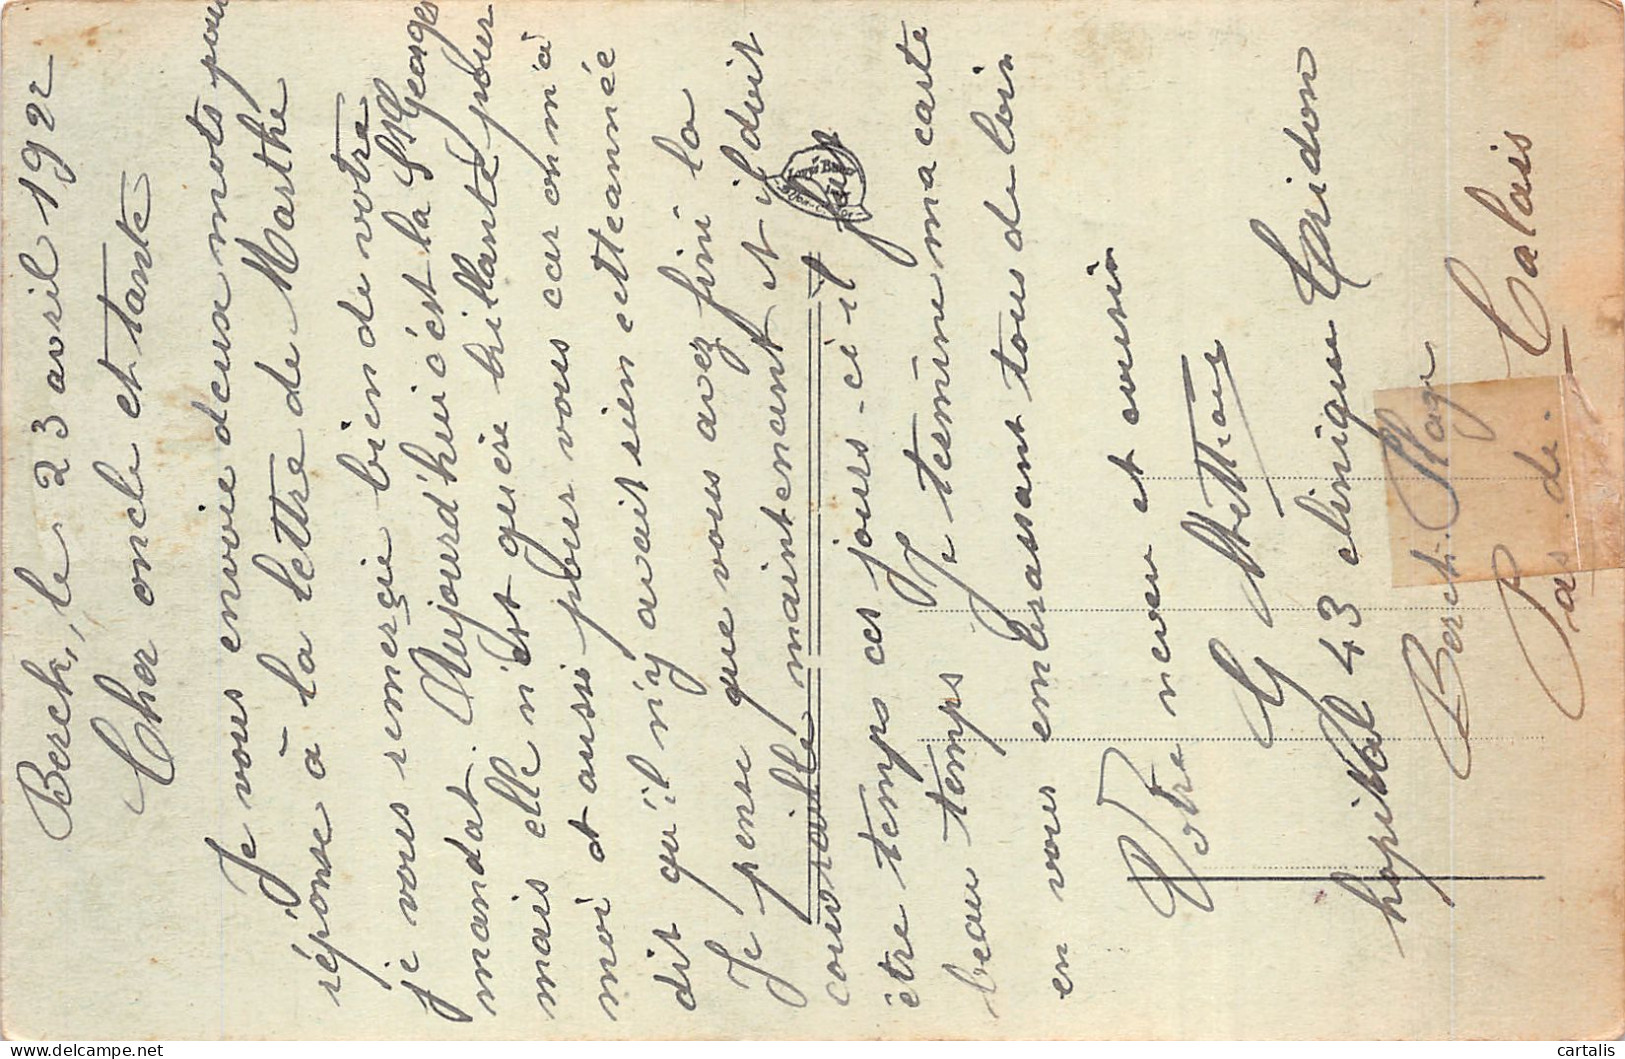 Berck, le 23 avril 1922
Cher oncle et tante
Je vous envoie deux mots pour
réponse à la lettre de Marthe
je vous remerçie bien de votre
mandat. Aujourd'hui c'est la St Georges
mais elle n'est guère brillante pour
moi et aussi pour vous car on m'a
dit qu'il n'y avait rien cette année
Je pense que vous avez fini la
couvraille maintenant et il doit
être temps ces jours-ci il fait
beau temps Je termine ma carte
en vous embrassant tous de loin
Votre neveu et cousin
G
hopital 43 clinique Tridon
Berck-Plage
Pas-de-Calais
Berck
cartalis